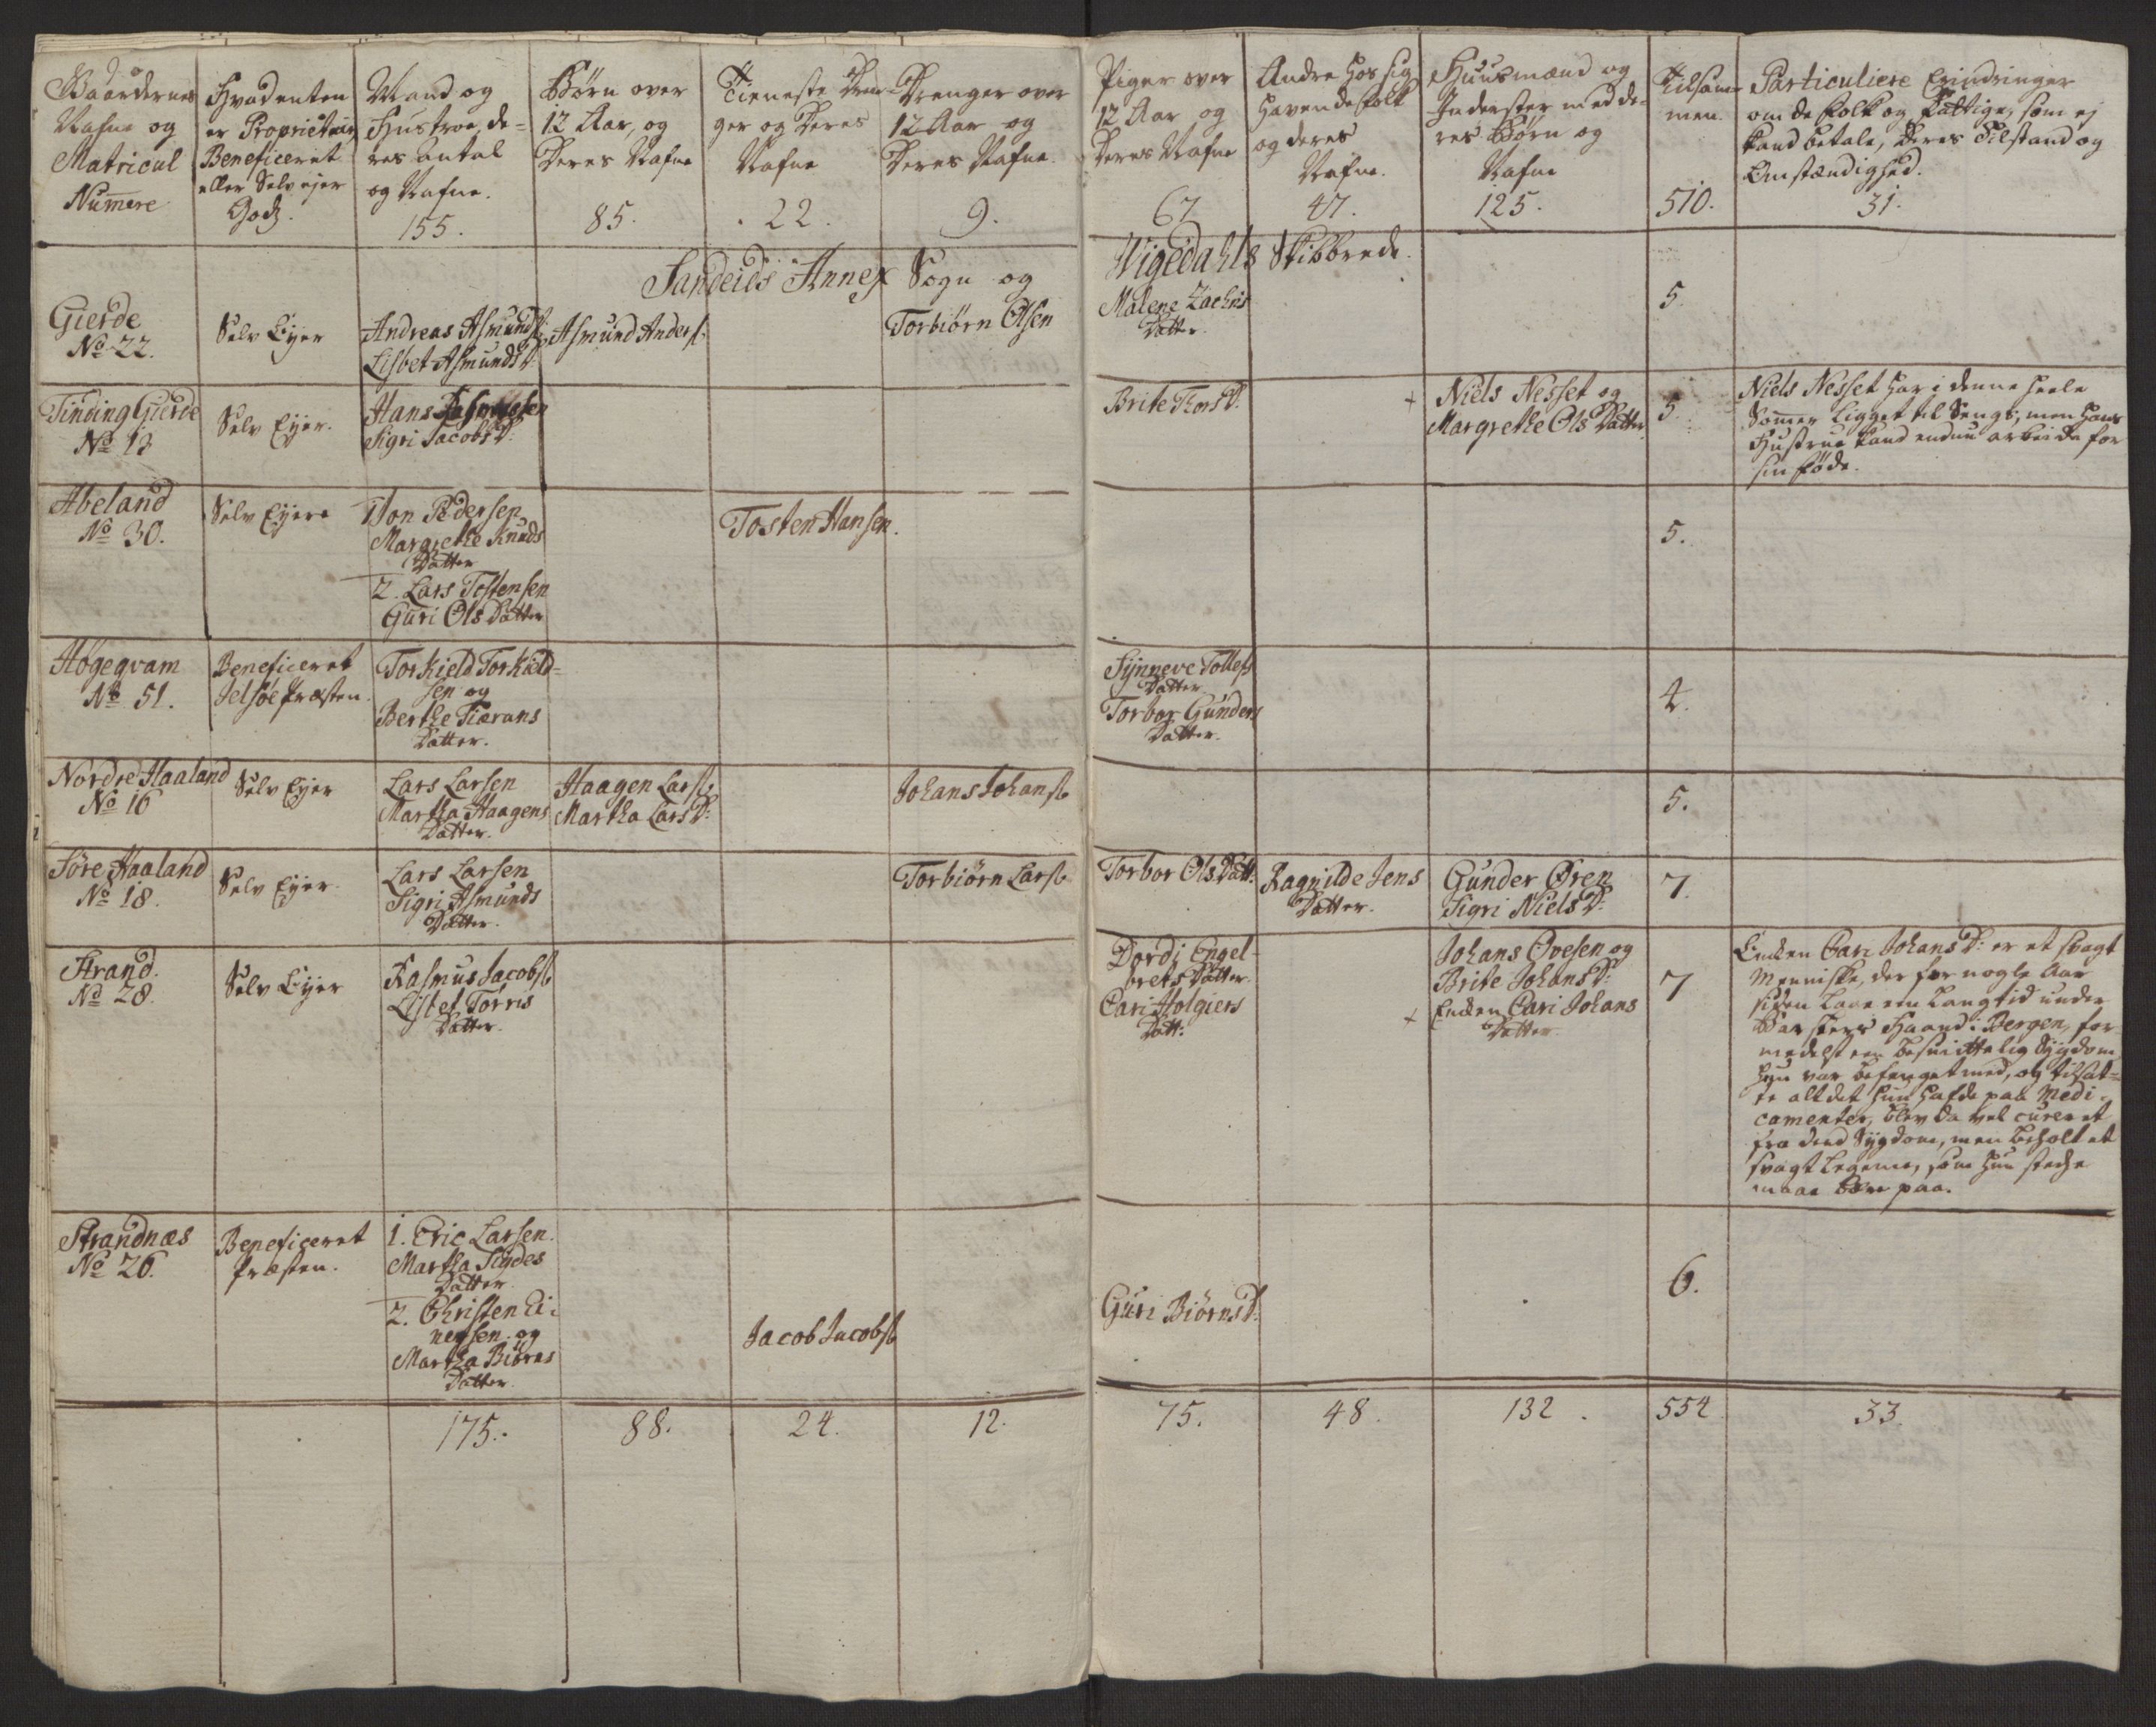 Gaardernes
Nafne og
Matricul
Numere
Hvad enten
er Proprietair
Beneficeret
eller Selv ejer
Godz.
Mand og
Hustroe, de-
res antal
og Nafne.
155.
Börn over
12 Aar, og
Deres Nafne
85.
Tieneste Dren-
ger og Deres
Nafne
22.
Drenger over
12 Aar og
Deres Nafne.
9.
Piger over
12 Aar og
Deres Nafne
67
Andre hos sig
havende folk
og deres
Nafne.
47.
Huusmænd og
Inderster med de-
res Börn og
Nafne
125.
Tilsam-
men.
510.
Particuliere Erindringer
om de folk og fattige, som ej
kand betale, Deres Tilstand og
Omstændighed.
31.
Sandeids Annex Sogn og
Vigedahls Skibbrede.
Gierde
No 22.
Selv Eyer
Andreas Asmunds.
Lisbet Asmunds D:
Asmund Anders.
Torbiörn Olsen
Malene Zachris
Datter.
5.
Tinding Gierde
No 13
Selv Eyer.
Hans Rasmussen
Sigri Jacobs D:
Brite Thors D:
+ Niels Nesset og
Margrethe Ols Datter
5.
Niels Nesset har i denne heele
Sommer ligget til Sengs, men hans
Hustrue kand endnu arbeide for
sin föde.
Abeland
No 30.
Selv Eyere
1 Jon Pedersen
Margrethe Knuds
Datter
2. Lars Tostensen
Guri Ols Datter
Tosten Hansen.
5.
Høgeqvam
No 51.
Beneficeret
Jelsöe Præsten.
Torkield Torkield-
sen og
Berthe Tiærans
Datter.
Synneve Tollefs
Datter
Torbor Gunders
Datter.
4.
Nordre Haaland
No 16
Selv Eyer
Lars Larsen
Martha Haagens
Datter.
Haagen Lars.
Martha Lars D:
Johans Johans.
5.
Söre Haaland
No 18.
Selv Eyer.
Lars Larsen
Sigri Asmunds
Datter.
Torbiörn Lars.
Torbor Ols Datt:
Ragnilde Jens
Datter.
Gunder Øren
Sigri Niels D:
7.
Strand.
No 28.
Selv Eyer
Rasmus Jacobs.
Lisbet Torris
Datter.
Dordi Engel-
brets Datter
Cari Holgiers
Datt:
Johans Ovesen og
Brite Johans D:
+ Enken Cari Johans
Datter.
7
Enken Cari Johans D: er et svagt
Menniske, der for nogle Aar
siden laae en lang tid under
Barskers Haand i Bergen, for
medelst en besmittelig Sygdom
hun var befænget med, og tilsat-
te alt det hun hafde paa Medi-
camenter, blev da vel cureret
fra dend Sygdom, men beholt et
svagt Legeme, som hun stedse
maae bære paa.
Strandnæs
No 26.
Beneficeret
Præsten.
1. Eric Larsen.
Martha Siydes
Datter
2. Christen Ei-
nersen og
Martha Biörns
Datter
Jacob Jacobs.
Guri Biörns D:
6.
175.
88.
24.
12.
75.
48.
132.
554
33.